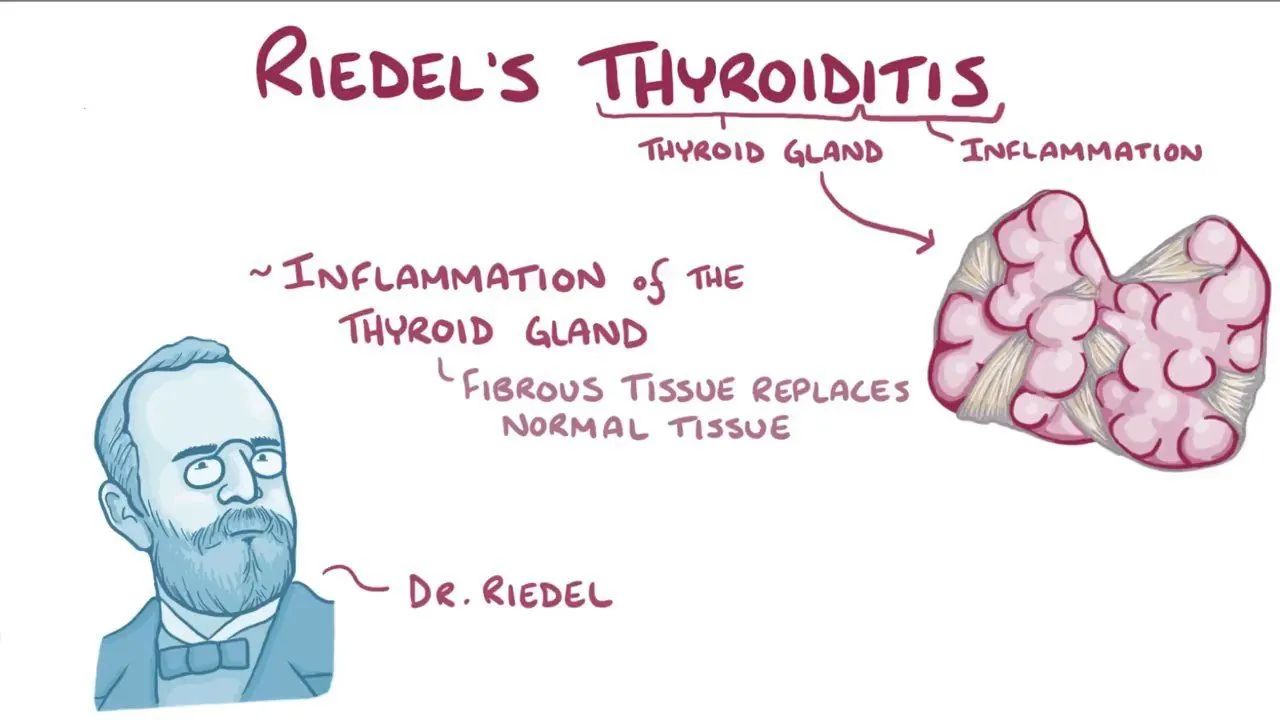 RIEDEL'S THYROIDITIS
THYROID GLAND
INFLAMMATION
~ INFLAMMATION of THE
THYROID GLAND
FIBROUS TISSUE REPLACES
NORMAL TISSUE
DR. RIEDEL